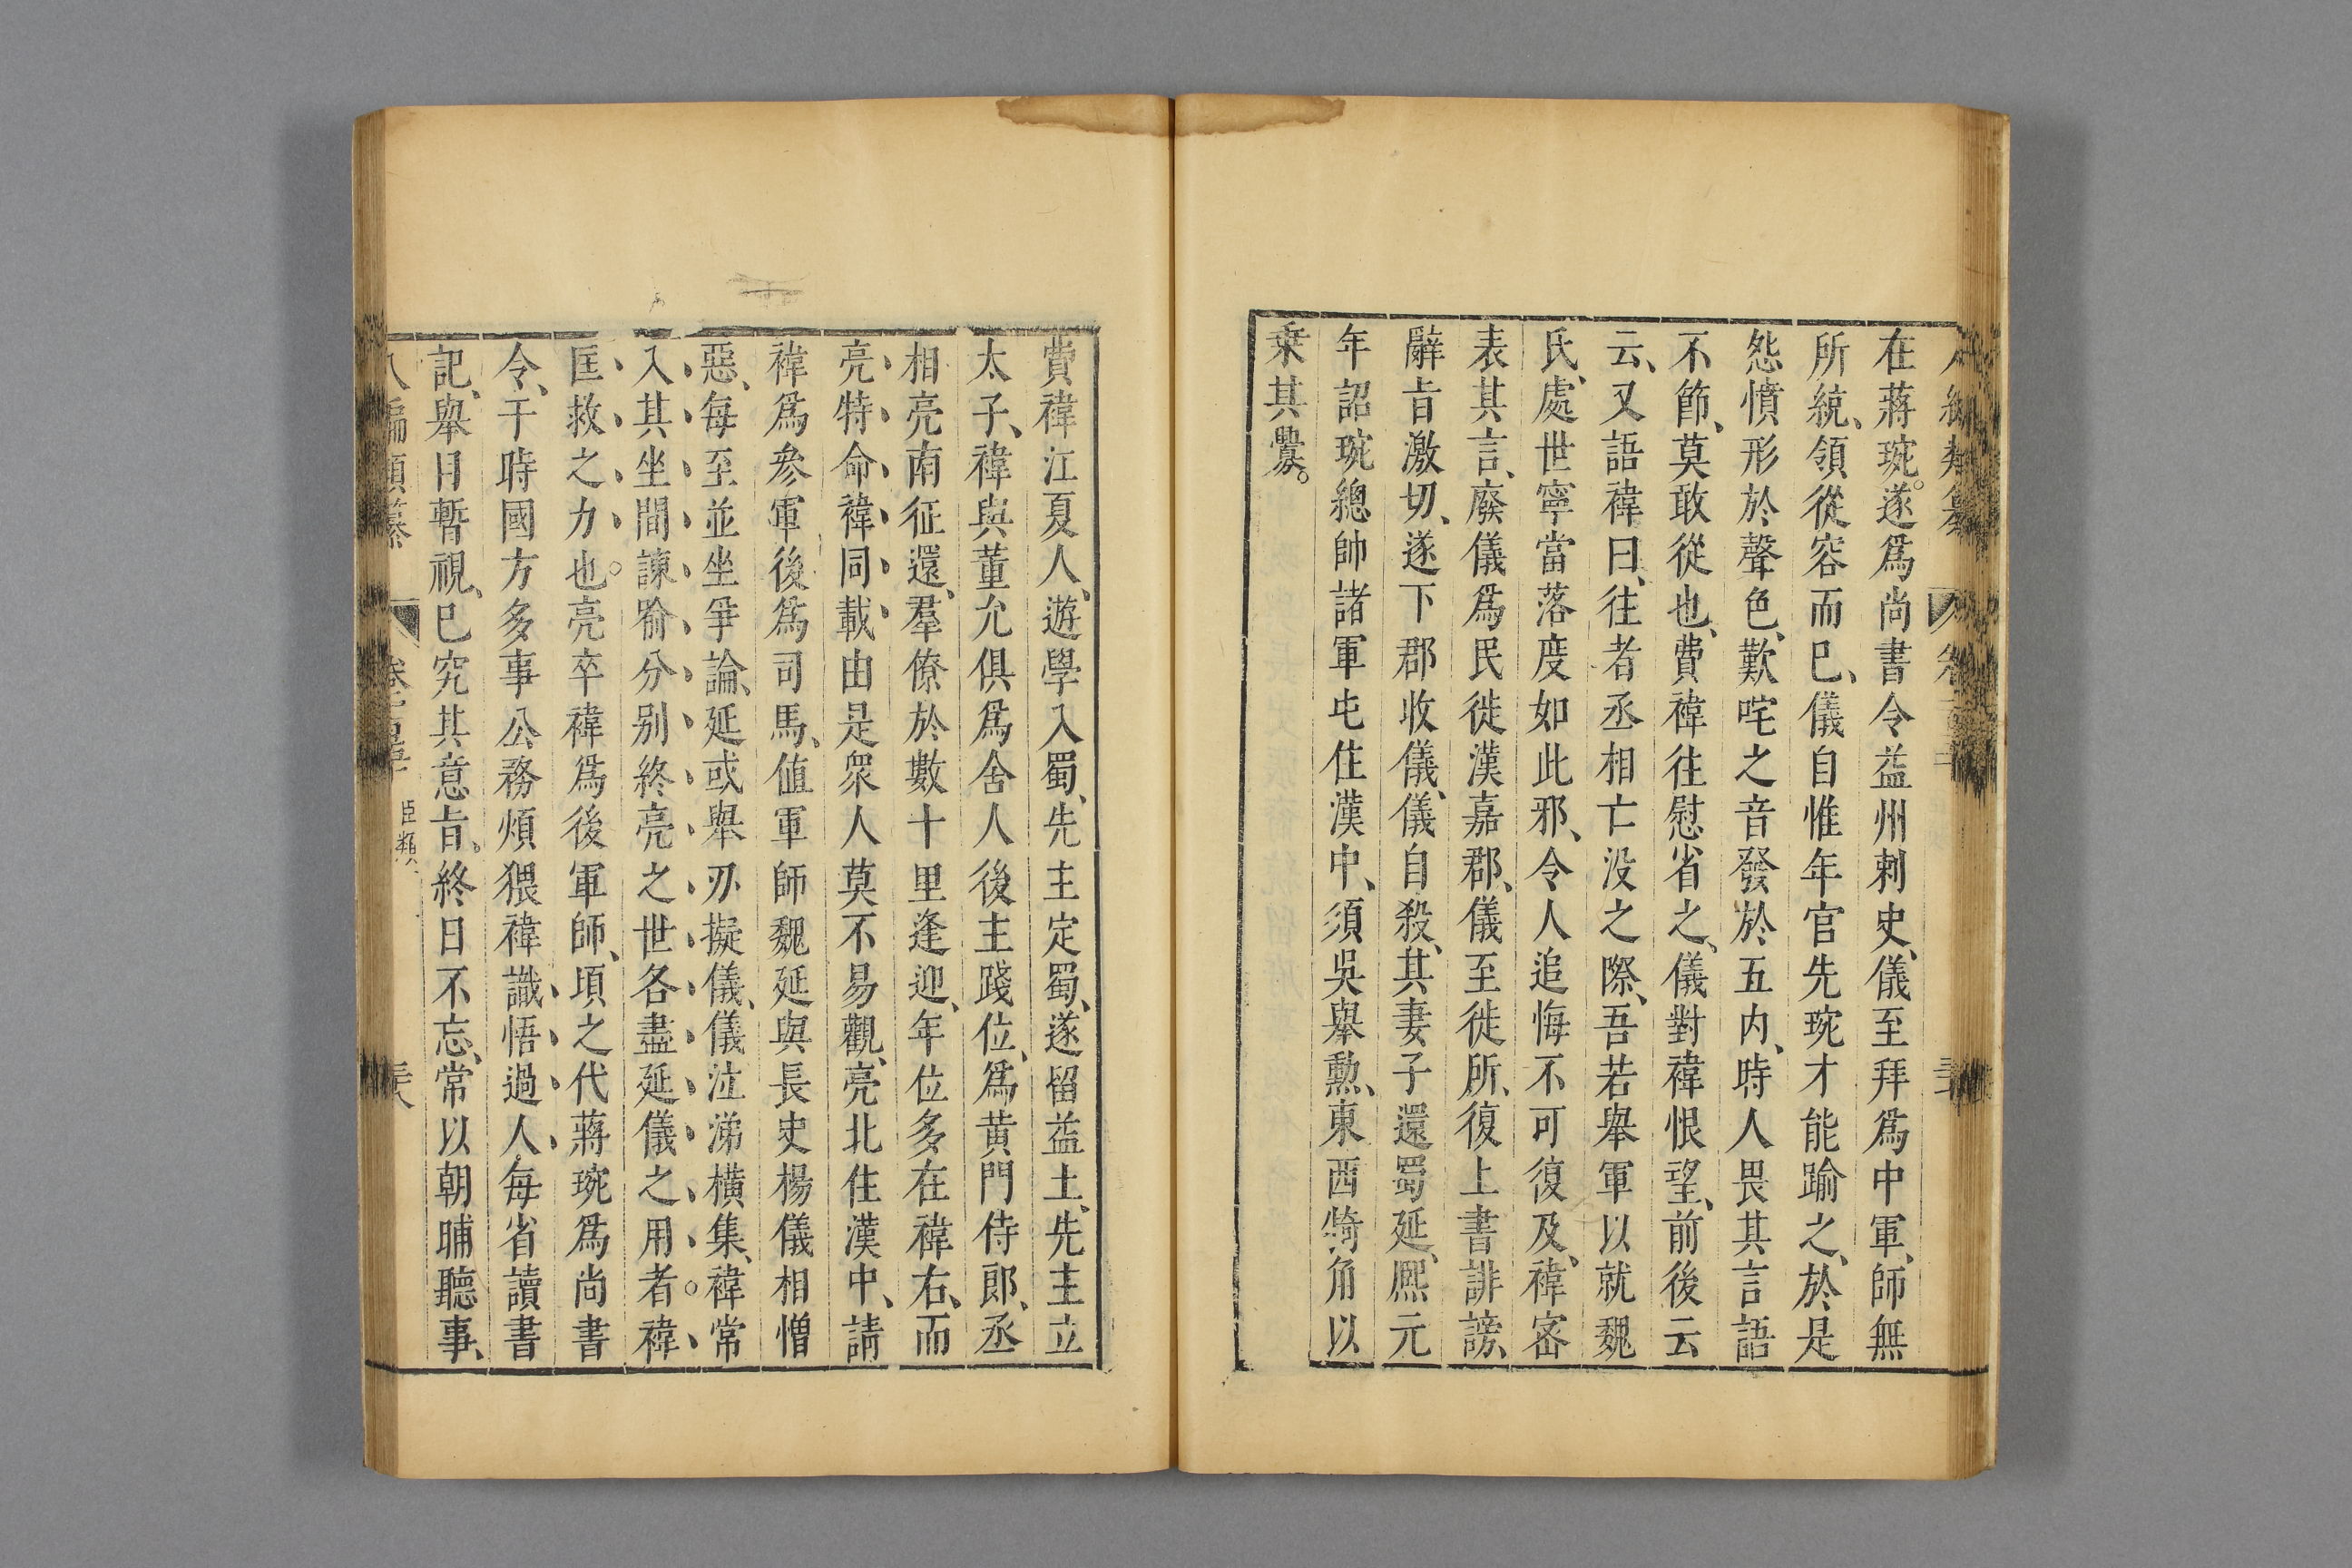 在蔣琬。遂爲尚書令益州刺史、儀至拜爲中軍、師無
所統、領從容而已、儀自惟年官先琬才能踰之、於是
怨憤形於聲色、歎咤之音發於五内、時人畏其言語
不節、莫敢從也、費禕往慰省之、儀對禕恨望、前後云
云、又語禕曰、往者丞相亡没之際、吾若舉軍以就魏
氏、處世寧當落度如此邪、令人追悔不可復及、禕宻
表其言、廢儀爲民徙漢嘉郡、儀至徙所、復上書誹謗、
辭旨激切、遂下郡收儀、儀自殺、其妻子還蜀延、熈元
年詔琬總帥諸軍屯住漢中、須吳舉勲、東西犄角以
乗其釁。
費禕江夏人、遊學入蜀、先主定蜀、遂留益土、先主立
太子、禕與董允俱爲舍人後主踐位、爲黄門侍郎、丞
相亮南征還、羣僚於數十里逢迎、年位多在禕右、而
亮特命禕同載由是衆人莫不易觀、亮北住漢中、請
禕爲參軍後爲司馬、值軍師魏延與長史楊儀相憎
惡、每至並坐爭論、延或舉刃擬儀、儀泣涕横集、禕常
入其坐間諫喻分别終亮之世各盡延儀之用者禕
匡救之力也。亮卒禕爲後軍師、頃之代蔣琬爲尚書
令、于時國方多事公務煩猥禕識悟過人每省讀書
記、舉目暫視、已究其意旨。終日不忘、常以朝晡聽事、
八編類纂 臣類